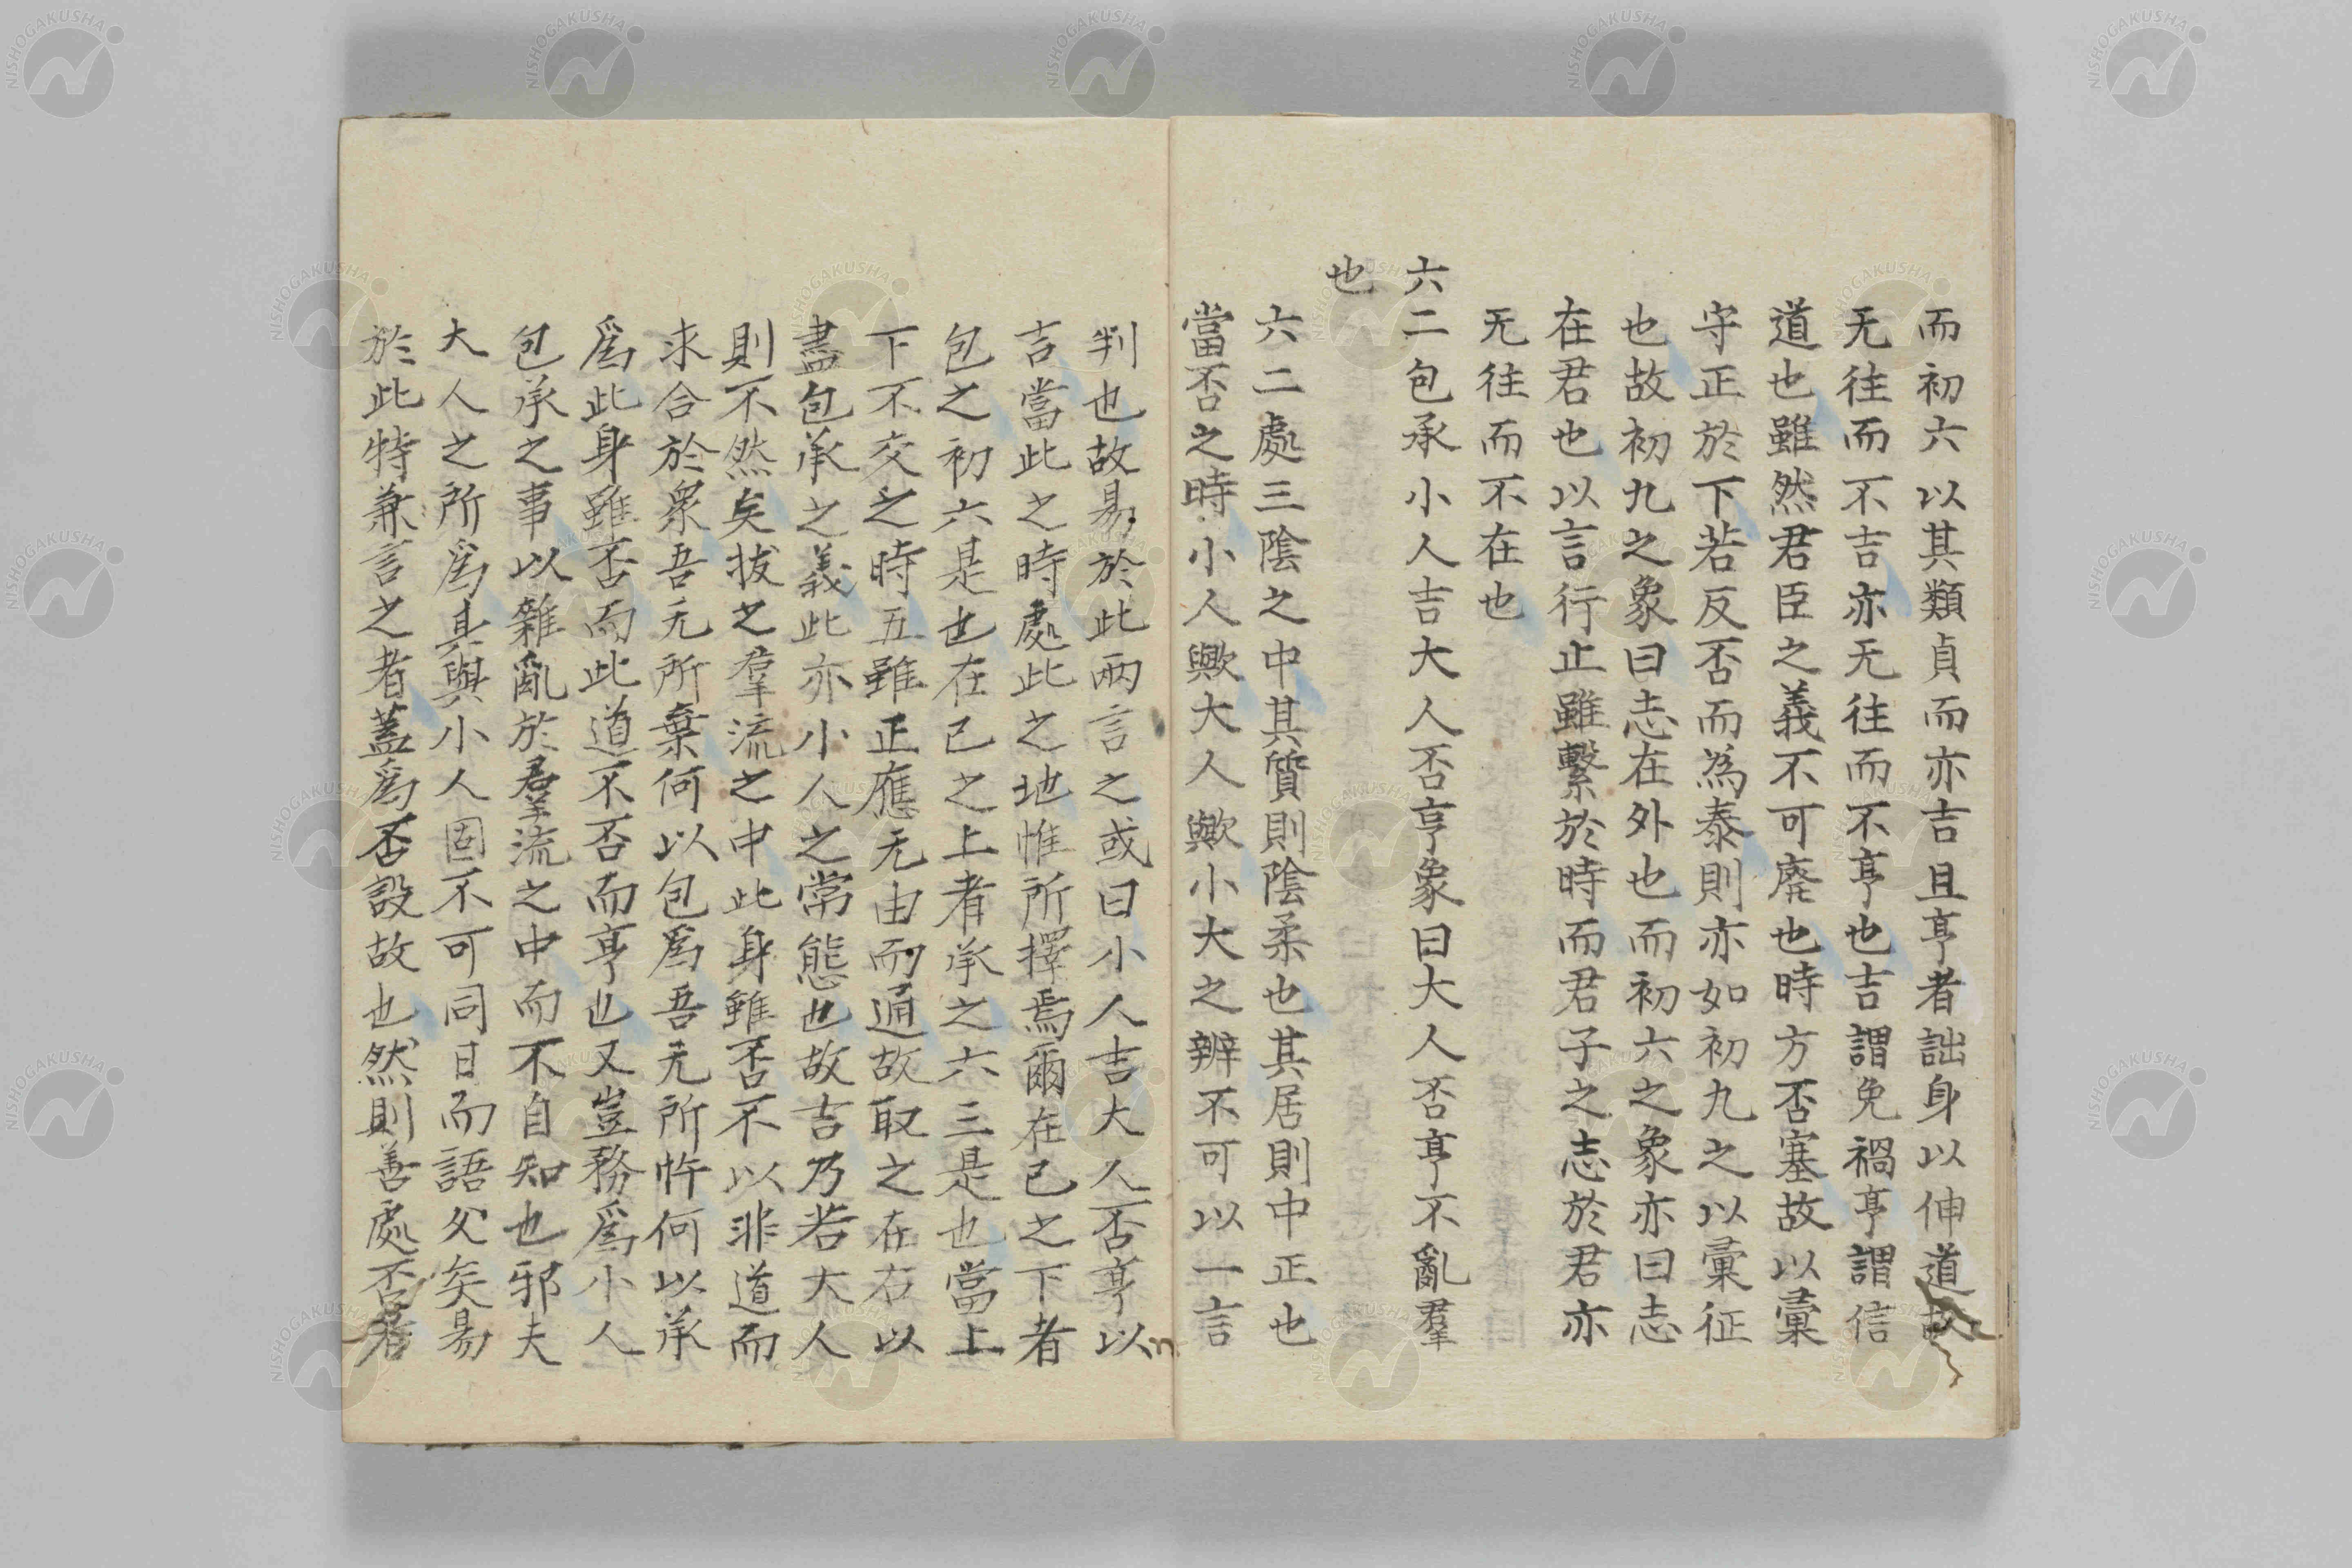 而初六以其類貞而亦吉且亨者詘身以伸道故
无往而不吉亦无往而不亨也吉謂免禍亨謂信
道也雖然君臣之義不可廃也時方否塞故以彙
守正於下若反否而為泰則亦如初九之以彙征
也故初九之象曰志在外也而初六之象亦曰志
在君也以言行止雖繫於時而君子之志於君亦
无往而不在也
六二包承小人吉大人否亨象曰大人否亨不亂羣
也
六二處三陰之中其質則陰柔也其居則中正也
當否之時小人歟大人歟小大之辨不可以一言
判也故易於此两言之或曰小人吉大人否亨以
吉當此之時處此之地惟所擇焉爾在己之下者
包之初六是也在己之上者承之六三是也當上
下不交之時五雖正應无由而通故取之在右以
盡包承之義此亦小人之常態也故吉乃若大人
則不然矣拔之羣流之中此身雖否不以非道而
求合於衆吾无所棄何以包爲吾无所忤何以承
爲此身雖否而此道不否而亨也又豈務爲小人
包承之事以雜亂於羣流之中而不自知也邪夫
大人之所爲其與小人固不可同日而語久矣易
於此特兼言之者蓋爲否設故也然則善處否者
NISHOGAKUSHA